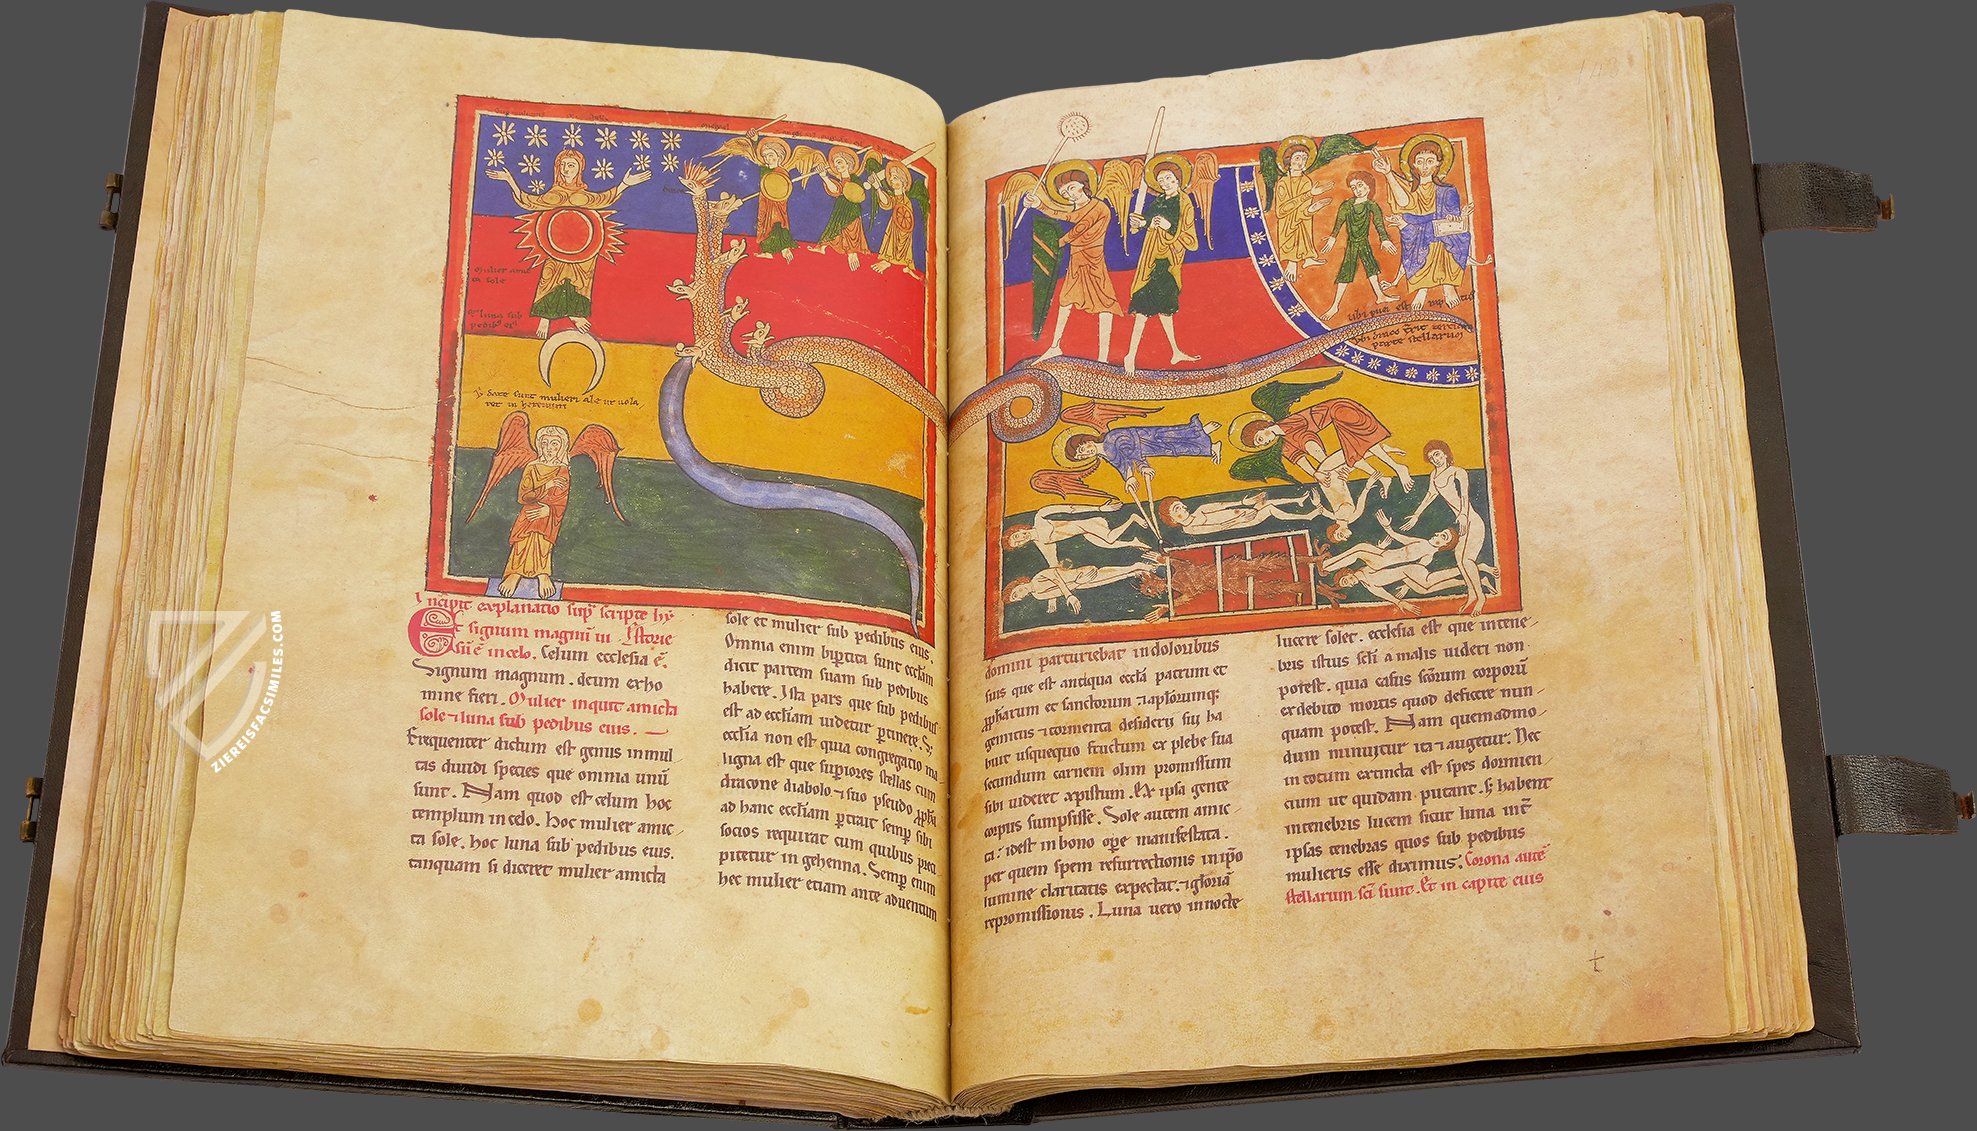 mulier amic
ta sole
et luna sub
pedib; ei
date sunt mulieri ale ut vola
ret in heremum
ubi puer est rap tus
ubi draco t̄xit terciam
parte stellarum
148
Incipit explanatio sup̄ scripte hy
Et signum magnū ui storie
sū ē in celo. Celum ecclesia ē.
Signum magnum. deum ex ho
mine fieri. Mulier inquit amicta
sole ⁊ luna sub pedibus eius.
Frequenter dictum est genus in mul
tas diuidi species que omnia unū
sunt. Nam quod est celum hoc
templum in celo. hoc mulier amic
ta sole. hoc luna sub pedibus eius.
tanquam si diceret mulier amicta
sole et mulier sub pedibus eius.
Omnia enim bip̄tita sunt eccl̄iam
dicit partem suam sub pedibus
habere. Ista pars que sub pedibus
est ad eccl̄iam uidetur p̄tinere. S;
eccl̄ia non est quia congregatio ma
ligna est que sup̄iores stellas cum
dracone diabolo ⁊ suo pseudo
ad hanc eccl̄iam p̄trait semp̄ sibi
socios requirat cum quibus preci
pitetur in gehenna. Semp̄ enim
hec mulier etiam ante aduentum
domini parturiebat in doloribus
suis que est antiqua eccl̄a patrum et
ꝓph̄arum et sanctorum ⁊ apl̄orumq;
gemitus ⁊ tormenta desiderij sui ha
buit usquequo fructum ex plebe sua
secundum carnem olim promissum
sibi uideret xp̄istum. Ex ipsa gente
corpus sumpsisse. Sole autem amic
ta: idest in bono op̄e manifestata.
per quem spem resurrectionis in ip̄o
lumine claritatis expectat. ⁊ gloriā
repromissionis. Luna uero in nocte
lucere solet. ecclesia est que in tene
bris istius scl̄i a malis uideri non
potest. quia casus sc̄orum corporū
ex debito mortis quod deficere nun
quam potest. Nam quemadmo
dum minuitur ita ⁊ augetur. Nec
in totum extincta est spes dormien
cium ut quidam putant. s; habent
in tenebris lucem sicut luna
ipsas tenebras quos sub pedibus
mulieris esse diximus. Corona autē
stellarum sc̄i sunt. Et in capite eius
ZIEREISFACSIMILES.COM